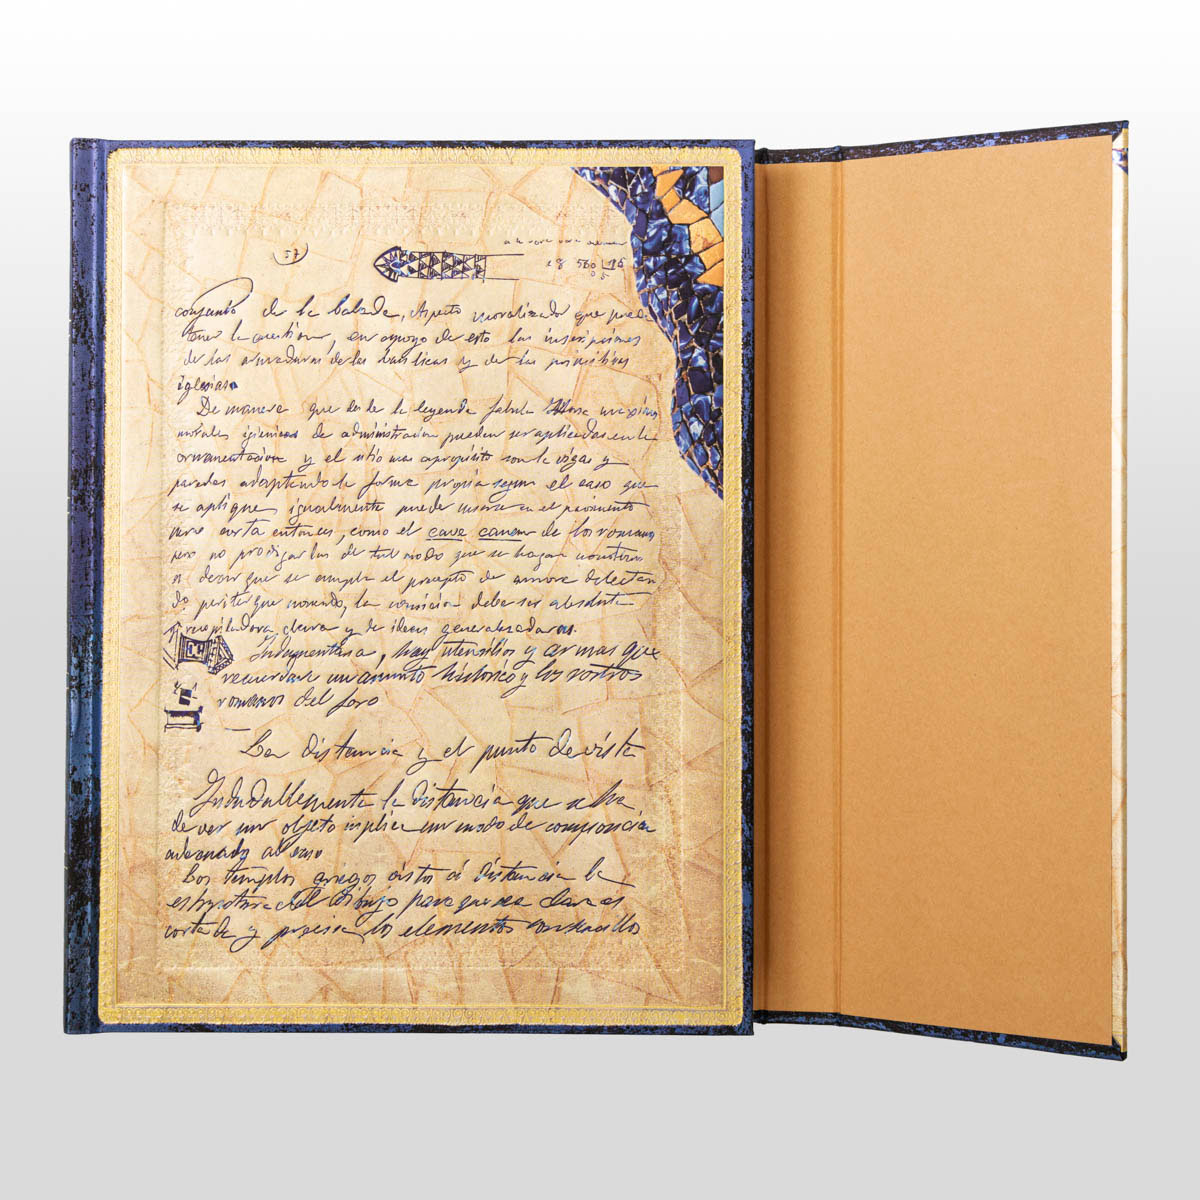 57
18 560 | 15
05
conjunto de la balada. Aspecto moralizador que puede
tener la cuestion, en apoyo de esto las inscripciones
de las de las basilicas y de las primitivas
iglesias.
De manera que desde la leyenda fabula maximas
morales igienicas de administracion pueden ser aplicadas en la
ornamentacion y el sitio mas apropósito son la vigas y
paredes adaptando la forma propia segun el caso que
se aplique, igualmente puede usarse en el pavimento
entonces, como el cave canem de los romanos
pero no prodigarlas de tal modo que se hagan
es decir que se cumpla el precepto de delectan
do pariter que monendo, la concision debe ser absoluta
clara y de ideas generalizadoras.
Indumentaria, hay utensilios y armas que
recuerdan un asunto histórico y los rostros
romanos del foro
La distancia y el punto de vista
Indudablemente la distancia que se ha
de ver un objeto implica un modo de composicion
adecuado al caso
Los templos griegos vistos á distancia la
estructura del dibujo para que sea clara es
cortada y precisa los elementos sencillos